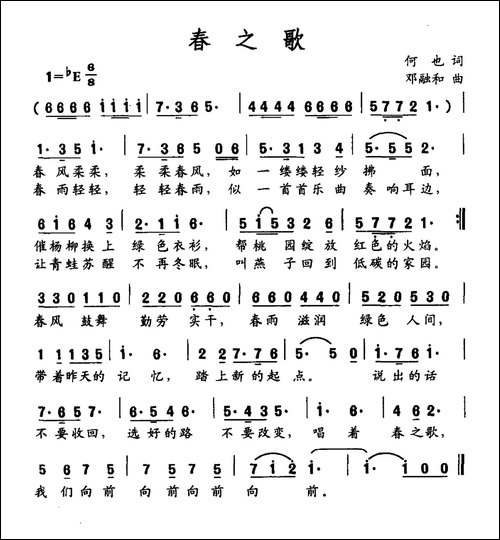 春之歌
1=♭E 6/8
何也词
邓融和曲
(6666 i i i i | 7·365· | 4444 6666 | 57721·)
1·35i· | 7·36506 | 5·3134 | 5·552
春风柔柔， 柔柔春风，如 一缕缕轻纱 拂面，
春雨轻轻， 轻轻春雨，似 一首首乐曲 奏响耳边，
6i643 | 2·1i6· | 5i532 | 57721· :‖
催杨柳换上 绿色衣衫， 帮桃园绽放 红色的火焰。
让青蛙苏醒 不再冬眠， 叫燕子回到 低碳的家园。
330110 | 220660 | 660440 | 220530
春风鼓舞 勤劳实干， 春雨滋润 绿色人间，
11135 | i·6· | 22·76 | 5·550 | i·76i
带着昨天的记忆， 踏上新的起点。 说出的话
7·65· | 6·546 | 4·332· | i·6· | 6·32·
不要收回， 选好的路 不要改变， 唱着春之歌，
5675 | 5675 | 67i2 | i· | i·i00 ‖
我们向前 向前向前向前。